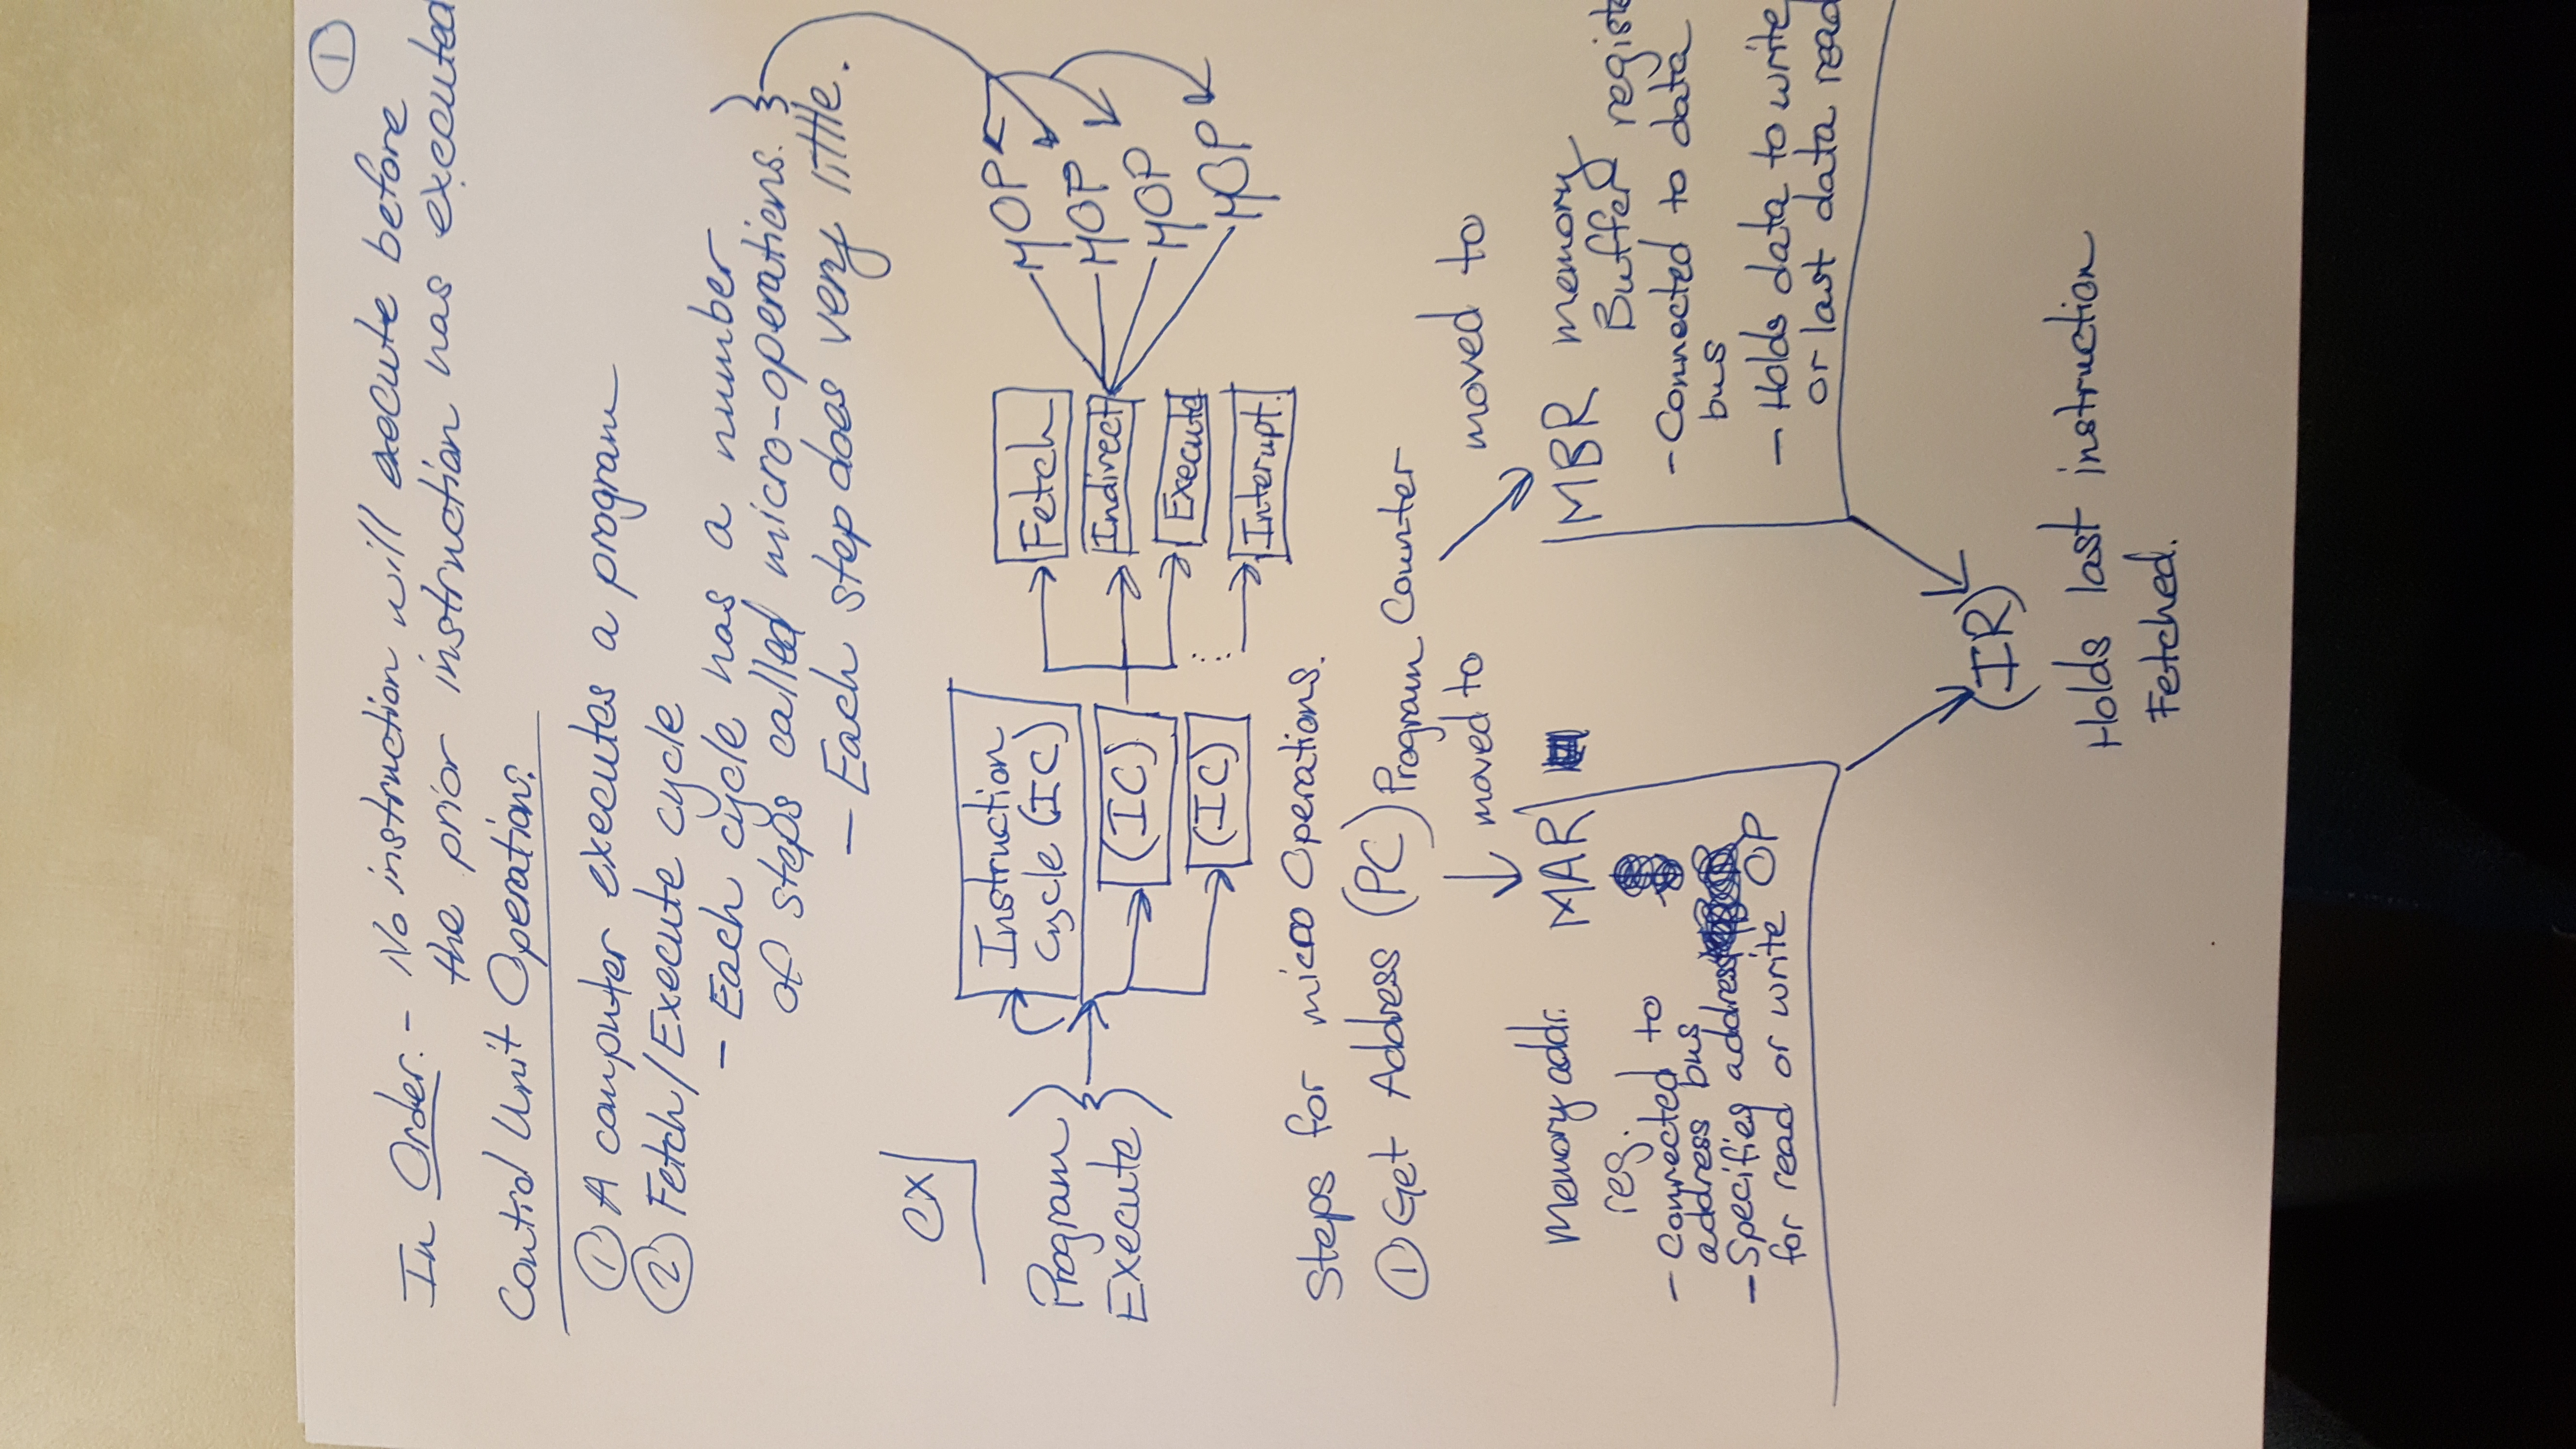 1
In Order. - No instruction will execute before
the prior instruction has executed
Control Unit Operation:
① A computer executes a program
② Fetch/Execute cycle
- Each cycle has a number
of steps called micro-operations.
- Each step does very little.
ex
Program
Execute
Instruction
Cycle (IC)
(IC)
(IC)
Fetch
Indirect
Execute
Interupt.
μOP
μOP
μOP
μOP
Steps for micro Operations.
① Get Address (PC) Program Counter
moved to
moved to
Memory addr.
reg.
MAR
- Connected to
address bus
- Specifies address
for read or write OP
MBR memory
Buffer regist
- Connected to data
bus
- Holds data to write
or last data read
(IR)
Holds last instruction
Fetched.